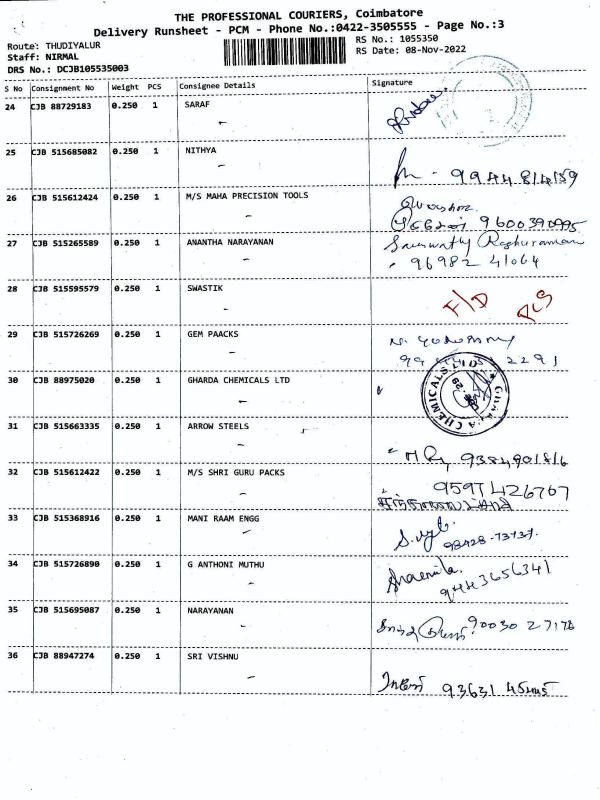 THE PROFESSIONAL COURIERS, Coimbatore
Delivery Runsheet - PCM - Phone No.:0422-3505555 - Page No.:3
Route: THUDIYALUR
RS No.: 1055350
Staff: NIRMAL
RS Date: 08-Nov-2022
DRS No.: DCJB105535003
S No Consignment No Weight PCS Consignee Details Signature
24 CJB 88729183 0.250 1 SARAF
25 CJB 515685082 0.250 1 NITHYA
26 CJB 515612424 0.250 1 M/S MAHA PRECISION TOOLS
9600390995
27 CJB 515265589 0.250 1 ANANTHA NARAYANAN Saraswathy Raghuraman
96982 41064
28 CJB 515595579 0.250 1 SWASTIK F/D
29 CJB 515726269 0.250 1 GEM PAACKS
30 CJB 88975020 0.250 1 GHARDA CHEMICALS LTD GHARDA CHEMICALS LTD
31 CJB 515663335 0.250 1 ARROW STEELS
9384901816
32 CJB 515612422 0.250 1 M/S SHRI GURU PACKS 9597426767
33 CJB 515368916 0.250 1 MANI RAAM ENGG
34 CJB 515726890 0.250 1 G ANTHONI MUTHU Sharmila
9443656341
35 CJB 515695087 0.250 1 NARAYANAN 90030 27176
36 CJB 88947274 0.250 1 SRI VISHNU